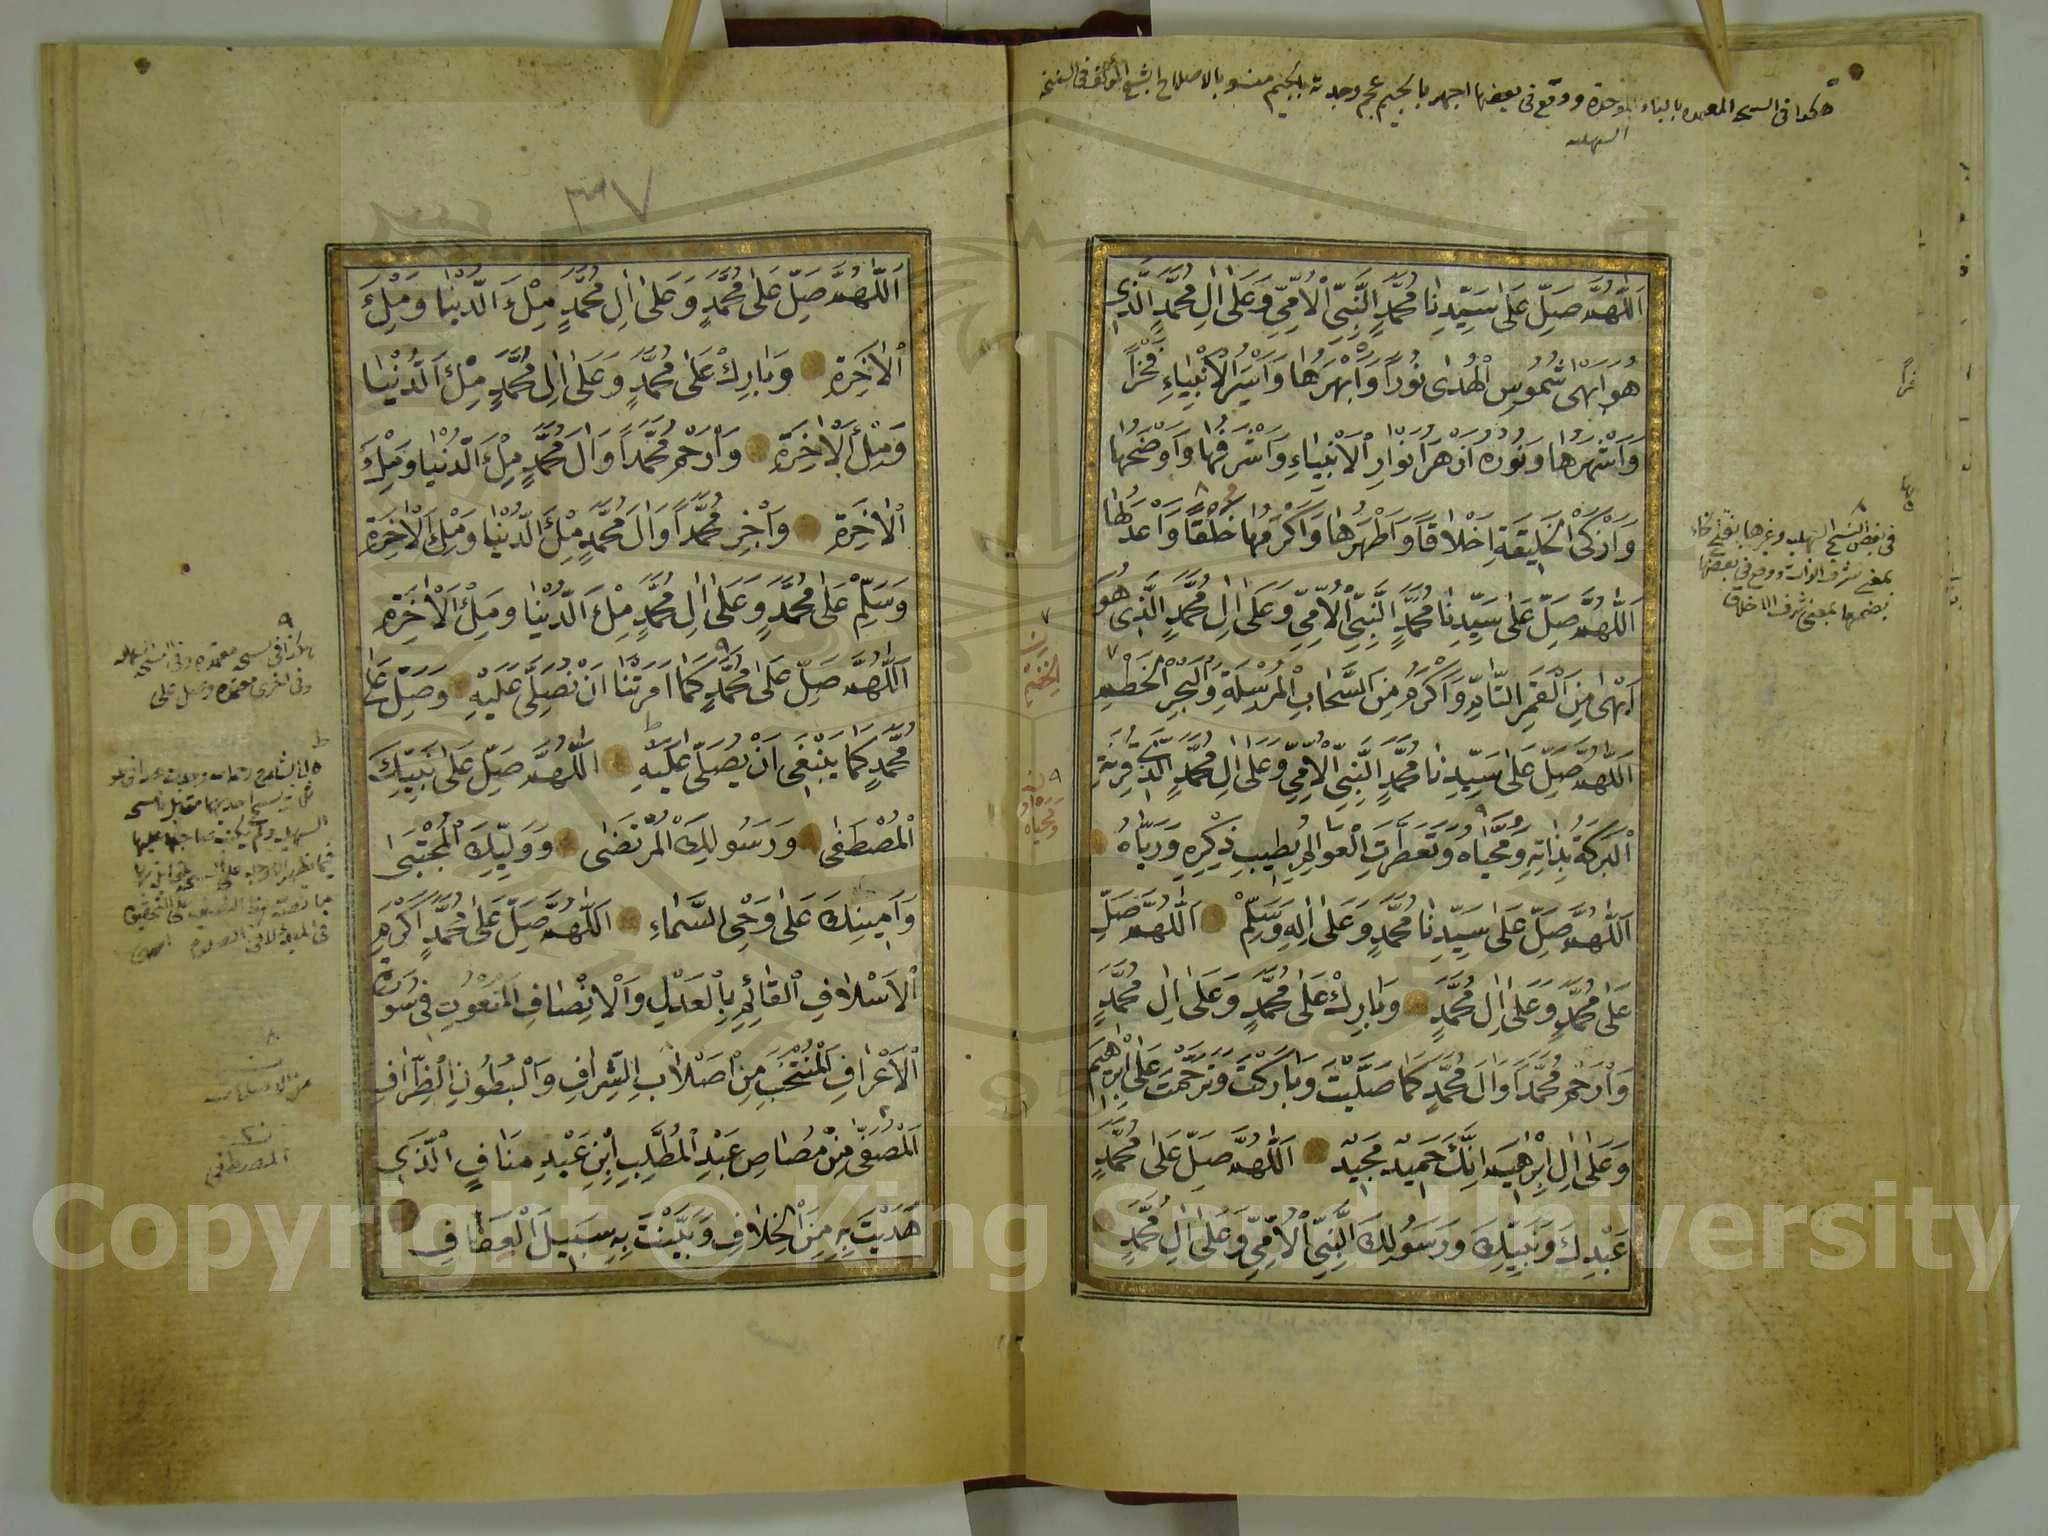 هكذا فى النسخ المعتمدة بالباء الموحدة ووقع فى بعضها اجهر بالجيم
السهلية
اَللّٰهُمَّ صَلِّ عَلٰى سَيِّدِنَا مُحَمَّدٍ النَّبِيِّ الْاُمِّيِّ وَعَلٰى اٰلِ مُحَمَّدٍ الَّذِي
هُوَ اَبْهٰى شُمُوسِ الْهُدٰى نُورًا وَاَبْهَرُهَا وَاَسْيَرُ الْاَنْبِيَاءِ فَخْرًا
وَاَشْهَرُهَا وَنُورُهُ اَزْهَرُ اَنْوَارِ الْاَنْبِيَاءِ وَاَشْرَقُهَا وَاَوْضَحُهَا
وَاَزْكَى الْخَلِيقَةِ اَخْلَاقًا وَاَطْهَرُهَا وَاَكْرَمُهَا خَلْقًا وَاَعْدَلُهَا
اَللّٰهُمَّ صَلِّ عَلٰى سَيِّدِنَا مُحَمَّدٍ النَّبِيِّ الْاُمِّيِّ وَعَلٰى اٰلِ مُحَمَّدٍ الَّذِي هُوَ
اَبْهٰى مِنَ الْقَمَرِ التَّامِّ وَاَكْرَمُ مِنَ السَّحَابِ الْمُرْسَلَةِ وَالْبَحْرِ الْخَطْمِ
اَللّٰهُمَّ صَلِّ عَلٰى سَيِّدِنَا مُحَمَّدٍ النَّبِيِّ الْاُمِّيِّ وَعَلٰى اٰلِ مُحَمَّدٍ الَّذِي قُرِنَتِ
الْبَرَكَةُ بِذَاتِهِ وَمُحَيَّاهُ وَتَعَطَّرَتِ الْعَوَالِمُ بِطِيبِ ذِكْرِهِ وَرَيَّاهُ
اَللّٰهُمَّ صَلِّ عَلٰى سَيِّدِنَا مُحَمَّدٍ وَعَلٰى اٰلِهِ وَسَلِّمْ اَللّٰهُمَّ صَلِّ
عَلٰى مُحَمَّدٍ وَعَلٰى اٰلِ مُحَمَّدٍ وَبَارِكْ عَلٰى مُحَمَّدٍ وَعَلٰى اٰلِ مُحَمَّدٍ
وَارْحَمْ مُحَمَّدًا وَاٰلَ مُحَمَّدٍ كَمَا صَلَّيْتَ وَبَارَكْتَ وَتَرَحَّمْتَ عَلٰى اِبْرٰهِيمَ
وَعَلٰى اٰلِ اِبْرٰهِيمَ اِنَّكَ حَمِيدٌ مَجِيدٌ اَللّٰهُمَّ صَلِّ عَلٰى مُحَمَّدٍ
عَبْدِكَ وَنَبِيِّكَ وَرَسُولِكَ النَّبِيِّ الْاُمِّيِّ وَعَلٰى اٰلِ مُحَمَّدٍ
فى بعض النسخ السهلية وغيرها بفتح الخاء
بمعنى شرف الذات ووقع فى بعضها
بضمها بمعنى شرف الاخلاق
٣٧
اَللّٰهُمَّ صَلِّ عَلٰى مُحَمَّدٍ وَعَلٰى اٰلِ مُحَمَّدٍ مِلْءَ الدُّنْيَا وَمِلْءَ
الْاٰخِرَةِ وَبَارِكْ عَلٰى مُحَمَّدٍ وَعَلٰى اٰلِ مُحَمَّدٍ مِلْءَ الدُّنْيَا
وَمِلْءَ الْاٰخِرَةِ وَارْحَمْ مُحَمَّدًا وَاٰلَ مُحَمَّدٍ مِلْءَ الدُّنْيَا وَمِلْءَ
الْاٰخِرَةِ وَاجْزِ مُحَمَّدًا وَاٰلَ مُحَمَّدٍ مِلْءَ الدُّنْيَا وَمِلْءَ الْاٰخِرَةِ
وَسَلِّمْ عَلٰى مُحَمَّدٍ وَعَلٰى اٰلِ مُحَمَّدٍ مِلْءَ الدُّنْيَا وَمِلْءَ الْاٰخِرَةِ
اَللّٰهُمَّ صَلِّ عَلٰى مُحَمَّدٍ كَمَا اَمَرْتَنَا اَنْ نُصَلِّيَ عَلَيْهِ وَصَلِّ عَلٰى
مُحَمَّدٍ كَمَا يَنْبَغِي اَنْ يُصَلّٰى عَلَيْهِ اَللّٰهُمَّ صَلِّ عَلٰى نَبِيِّكَ
الْمُصْطَفٰى وَرَسُولِكَ الْمُرْتَضٰى وَوَلِيِّكَ الْمُجْتَبٰى
وَاَمِينِكَ عَلٰى وَحْيِ السَّمَاءِ اَللّٰهُمَّ صَلِّ عَلٰى مُحَمَّدٍ اَكْرَمِ
الْاَسْلَافِ الْقَائِمِ بِالْعَدْلِ وَالْاِنْصَافِ الْمَنْعُوتِ فِي سُورَةِ
الْاَعْرَافِ الْمُنْتَخَبِ مِنْ اَصْلَابِ الشِّرَافِ وَالْبُطُونِ الظِّرَافِ
الْمُصَفّٰى مِنْ مُصَاصِ عَبْدِ الْمُطَّلِبِ ابْنِ عَبْدِ مَنَافٍ الَّذِي
هَدَيْتَ بِهِ مِنَ الْخِلَافِ وَبَيَّنْتَ بِهِ سَبِيلَ الْعَفَافِ
المصطفى
Copyright © King Saud University